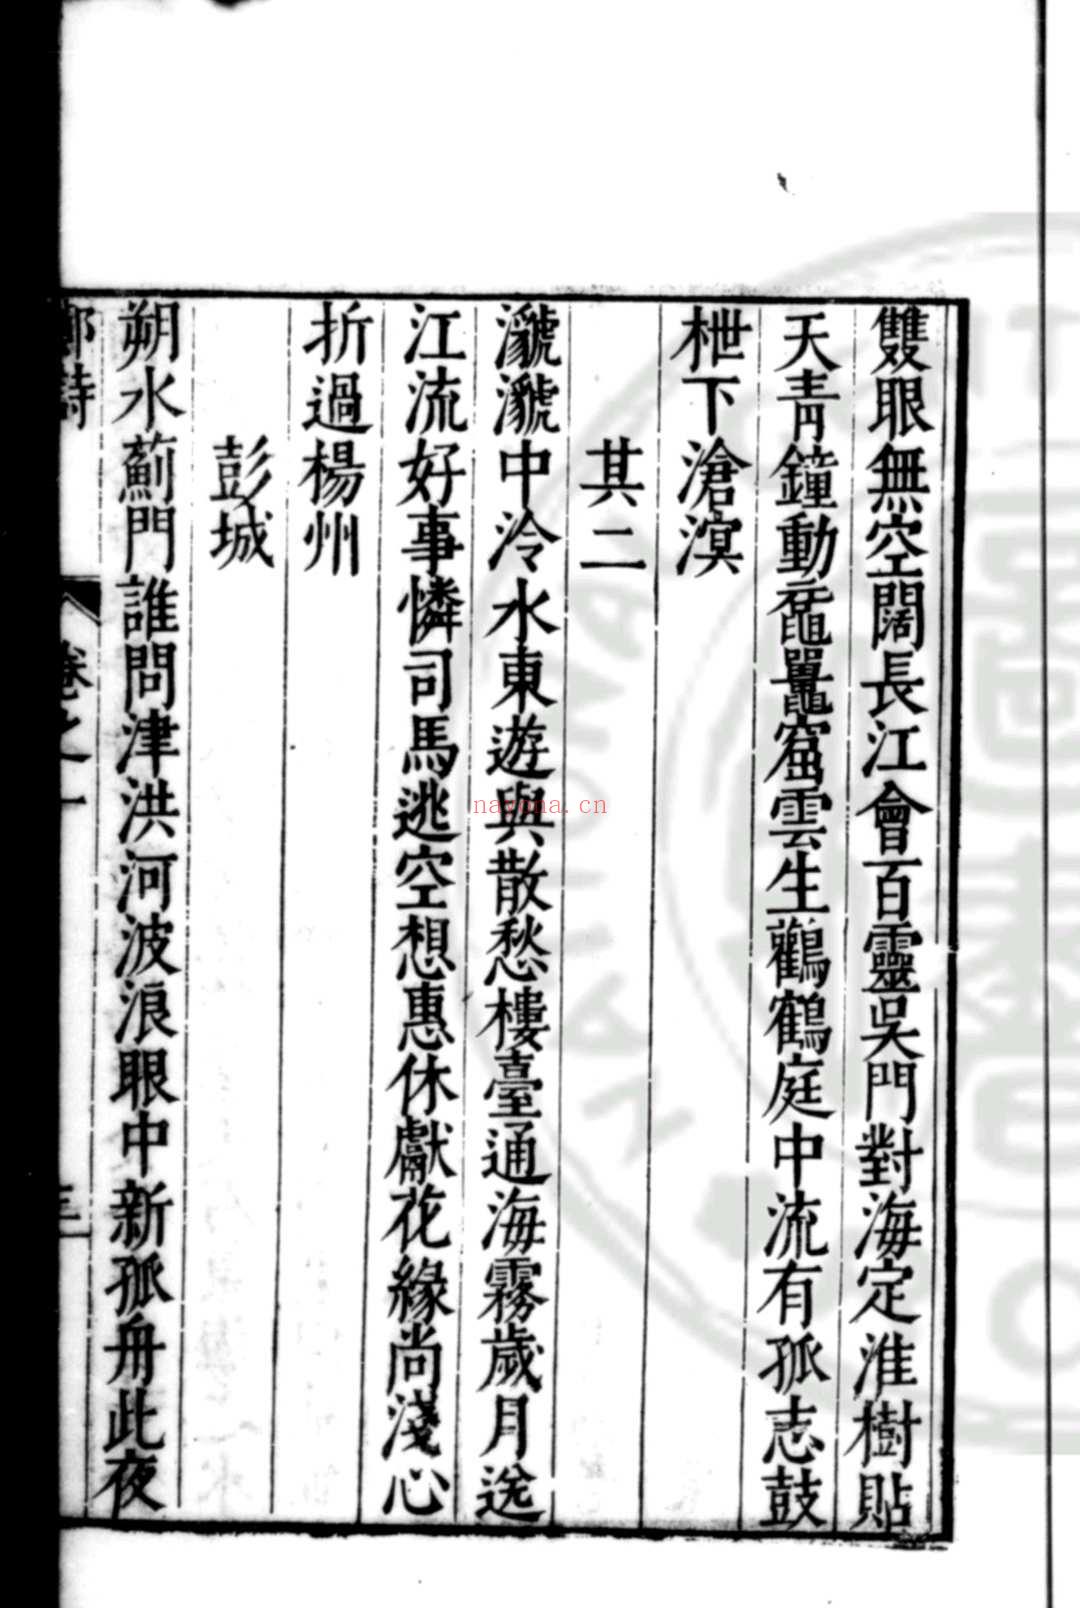 雙眼無空闊長江會百靈吳門對海定淮樹貼
天青鐘動黿鼉窟雲生鸛鶴庭中流有孤志鼓
枻下滄溟
其二
瀺瀺中泠水東遊與散愁樓臺通海霧歲月送
江流好事憐司馬逃空想惠休獻花緣尚淺心
折過楊州
彭城
朔水薊門誰問津洪河波浪眼中新孤舟此夜
詩 卷之一 三
nayona.cn